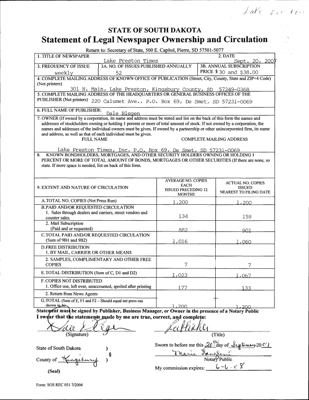 STATE OF SOUTH DAKOTA
Statement of Legal Newspaper Ownership and Circulation
Return to: Secretary of State, 500 E. Capitol, Pierre, SD 57501-5077
1. TITLE OF NEWSPAPER
Lake Preston Times
2. DATE
Sept. 20, 2007
3. FREQUENCY OF ISSUE
weekly
3A. NO. OF ISSUES PUBLISHED ANNUALLY
52
3B. ANNUAL SUBSCRIPTION
PRICE $ 30 and $38.00
4. COMPLETE MAILING ADDRESS OF KNOWN OFFICE OF PUBLICATION (Street, City, County, State and ZIP+4 Code)
(Not printers)
301 N. Main, Lake Preston, Kingsbury County, SD 57249-0368
5. COMPLETE MAILING ADDRESS OF THE HEADQUARTERS OR GENERAL BUSINESS OFFICES OF THE
PUBLISHER (Not printers) 220 Calumet Ave., P.O. Box 69, De Smet, SD 57231-0069
6. FULL NAME OF PUBLISHER:
Dale Blegen
7. OWNER (If owned by a corporation, its name and address must be stated and on the back of this form the names and
addresses of stockholders owning or holding 1 percent or more of total amount of stock. If not owned by a corporation, the
names and addresses of the individual owners must be given. If owned by a partnership or other unincorporated firm, its name
and address, as well as that of each individual must be given.
FULL NAME COMPLETE MAILING ADDRESS
Lake Preston Times, Inc. P.O. Box 69, De Smet, SD 57231-0069
8. KNOWN BONDHOLDERS, MORTGAGES, AND OTHER SECURITY HOLDERS OWNING OR HOLDING 1
PERCENT OR MORE OF TOTAL AMOUNT OF BONDS, MORTGAGES OR OTHER SECURITIES (If there are none, so
state. If more space is needed, list on back of this form.
9. EXTENT AND NATURE OF CIRCULATION
AVERAGE NO. COPIES
EACH
ISSUED PRECEDING 12
MONTHS
ACTUAL NO. COPIES
ISSUED
NEAREST TO FILING DATE
A. TOTAL NO. COPIES (Net Press Run) 1,200 1,200
B. PAID AND/OR REQUESTED CIRCULATION
1. Sales through dealers and carriers, street vendors and
counter sales. 134 159
2. Mail Subscription
(Paid and/or requested) 882 901
C. TOTAL PAID AND/OR REQUESTED CIRCULATION
(Sum of 9B1 and 9B2) 1,016 1,060
D. FREE DISTRIBUTION
1. BY MAIL, CARRIER OR OTHER MEANS
2. SAMPLES, COMPLIMENTARY AND OTHER FREE
COPIES 7 7
E. TOTAL DISTRIBUTION (Sum of C, D1 and D2) 1,023 1,067
F. COPIES NOT DISTRIBUTED
1. Office use, left over, unaccounted, spoiled after printing 177 133
2. Return from News Agents
G. TOTAL (Sum of E, F1 and F2 – Should equal net press run
shown in A) 1,200 1,200
Statement must be signed by Publisher, Business Manager, or Owner in the presence of a Notary Public
I swear that the statements made by me are true, correct, and complete:
Dale Blegen publisher
(Signature) (Title)
State of South Dakota )
§
County of Kingsbury )
(Seal)
Sworn to before me this 20th day of September 2007
Notary Public
My commission expires: 6-6-08
Form: SOS REC 051 7/2004